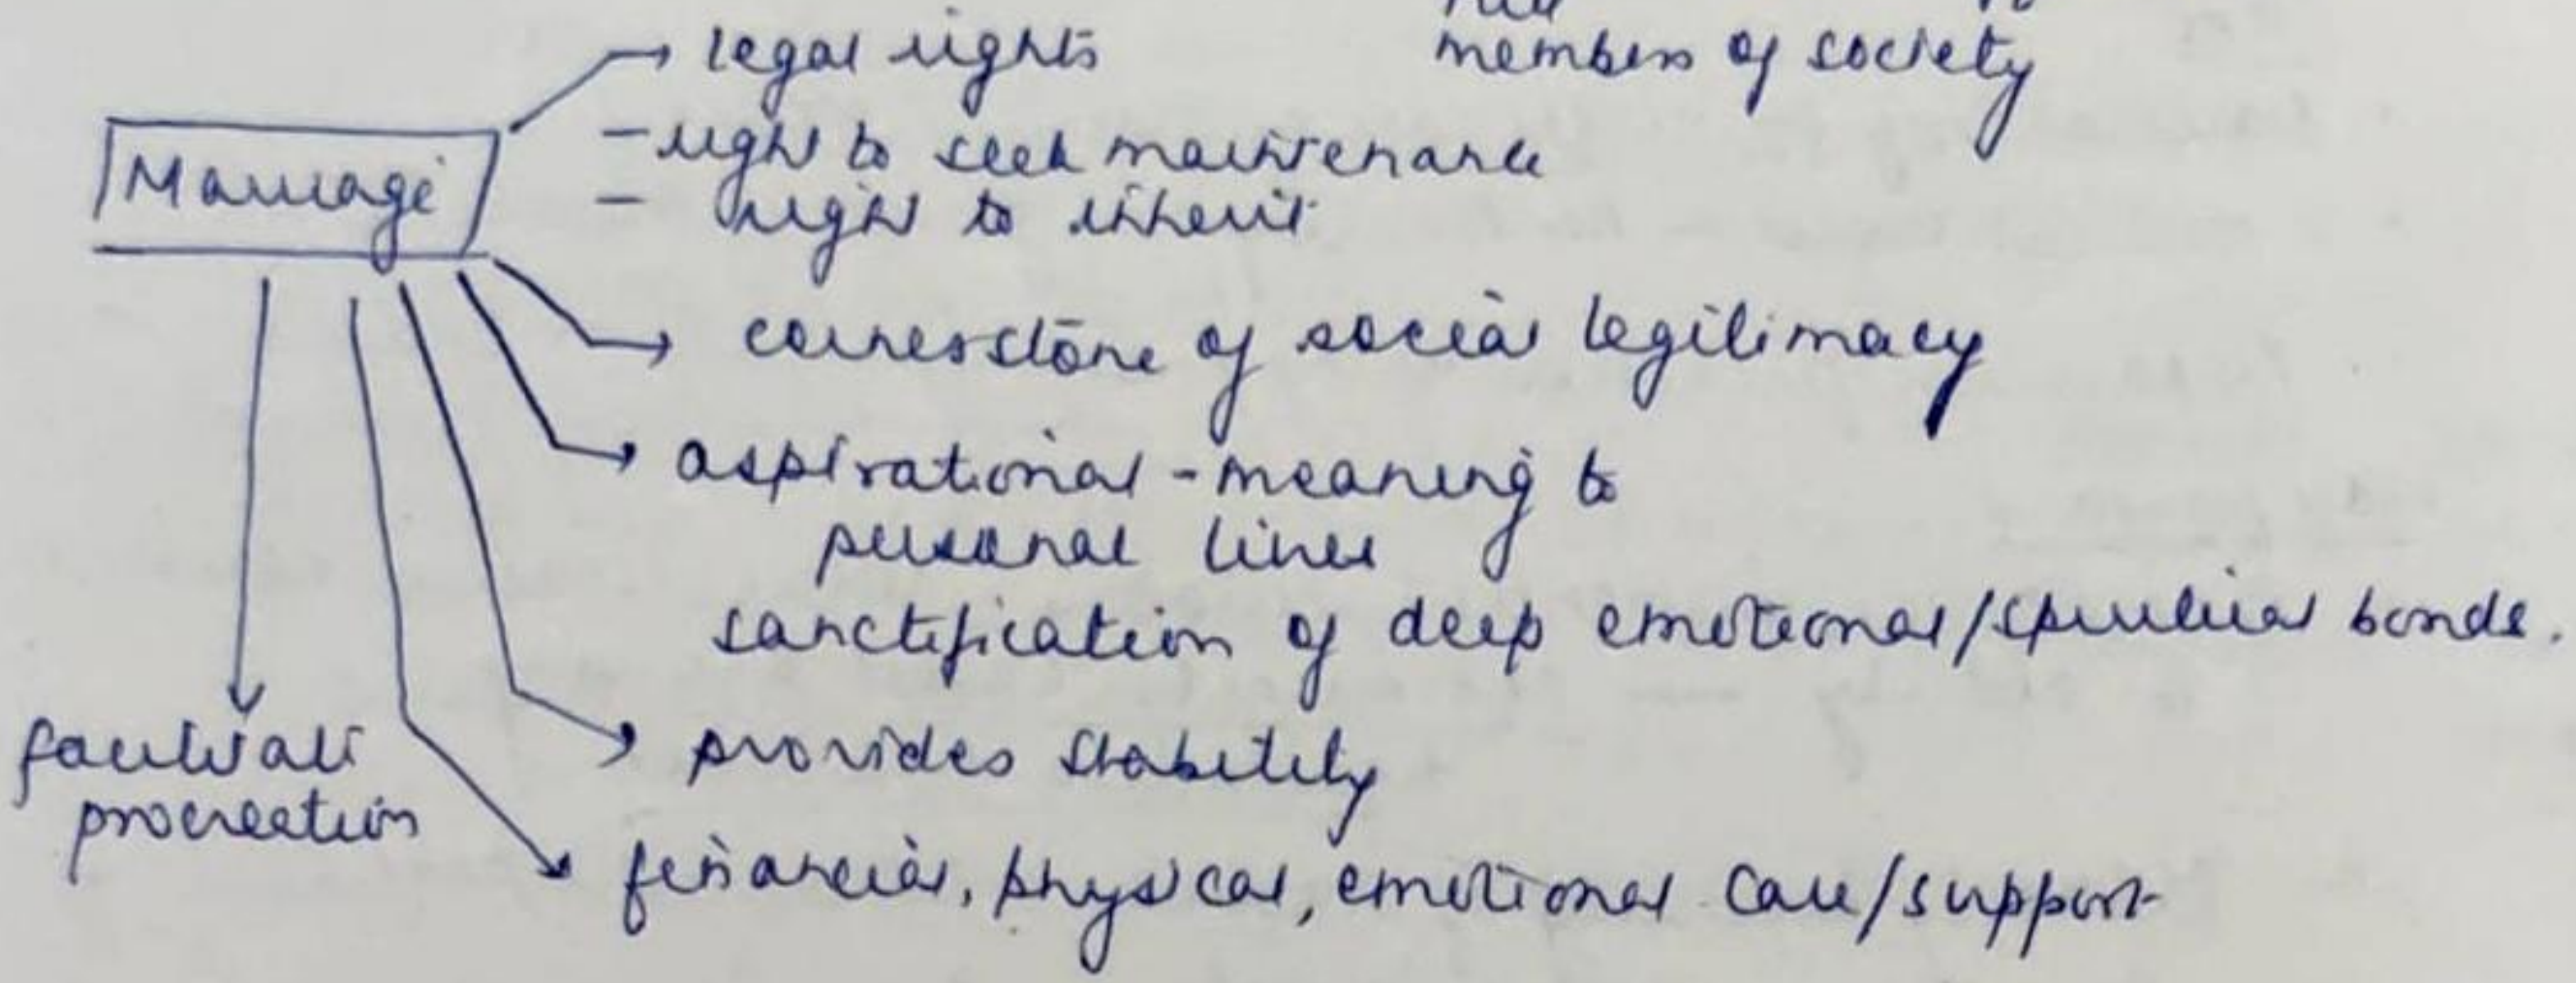 legal rights
members of society
Marriage
- right to seek maintenance
- right to inherit
cornerstone of social legitimacy
aspirational - meaning to
personal lives
sanctification of deep emotional/spiritual bonds.
provides stability
facilitate
procreation
financial, physical, emotional care/support